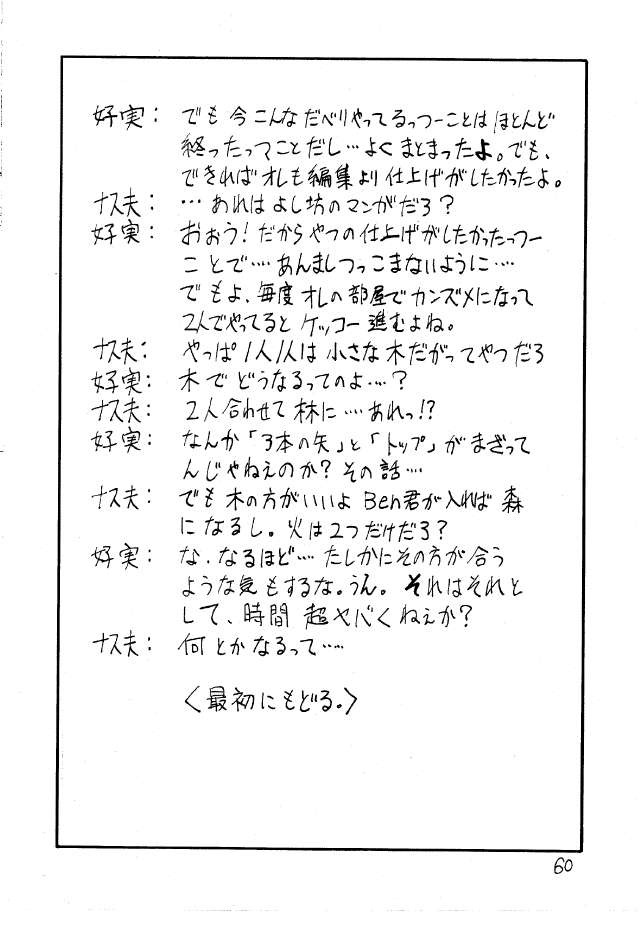 好実： でも今こんなだべりやってるっつーことはほとんど
終ったってことだし…よくまとまったよ。でも、
できればオレも編集より仕上げがしたかったよ。
ナス夫： …あれはよし坊のマンガだろ？
好実： おぉう！だからやつの仕上げがしたかったっつー
ことで…あんましつっこまないように…
でもよ、毎度オレの部屋でカンズメになって
2人でやってるとケッコー進むよね。
ナス夫： やっぱ1人1人は小さな木だがってやつだろ
好実： 木でどうなるってのよ…？
ナス夫： 2人合わせて林に…あれっ!?
好実： なんか「3本の矢」と「トップ」がまざって
んじゃねえのか？その話…
ナス夫： でも木の方がいいよ Ben君が入れば 森
になるし。火は2つだけだろ？
好実： な、なるほど…たしかにその方が合う
ような気もするな。うん。それはそれと
して、時間 超ヤバくねぇか？
ナス夫： 何とかなるって…
〈最初にもどる。〉
60